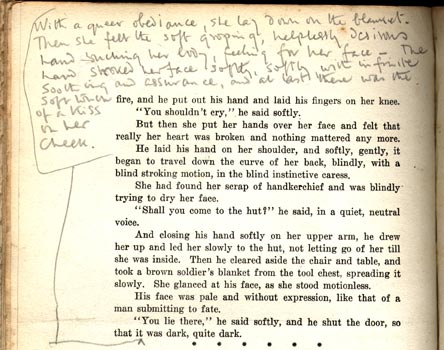 With a queer obedience, she lay down on the blanket.
Then she felt the soft, groping, helplessly desirous
hand touching her body, feeling for her face - The
hand stroked her face softly, softly, with infinite
soothing and assurance, and at last there was the
soft touch
of a kiss
on her
cheek.
fire, and he put out his hand and laid his fingers on her knee.
"You shouldn't cry," he said softly.
But then she put her hands over her face and felt that
really her heart was broken and nothing mattered any more.
He laid his hand on her shoulder, and softly, gently, it
began to travel down the curve of her back, blindly, with a
blind stroking motion, in the blind instinctive caress.
She had found her scrap of handkerchief and was blindly
trying to dry her face.
"Shall you come to the hut?" he said, in a quiet, neutral
voice.
And closing his hand softly on her upper arm, he drew
her up and led her slowly to the hut, not letting go of her till
she was inside. Then he cleared aside the chair and table, and
took a brown soldier's blanket from the tool chest, spreading it
slowly. She glanced at his face, as she stood motionless.
His face was pale and without expression, like that of a
man submitting to fate.
"You lie there," he said softly, and he shut the door, so
that it was dark, quite dark.